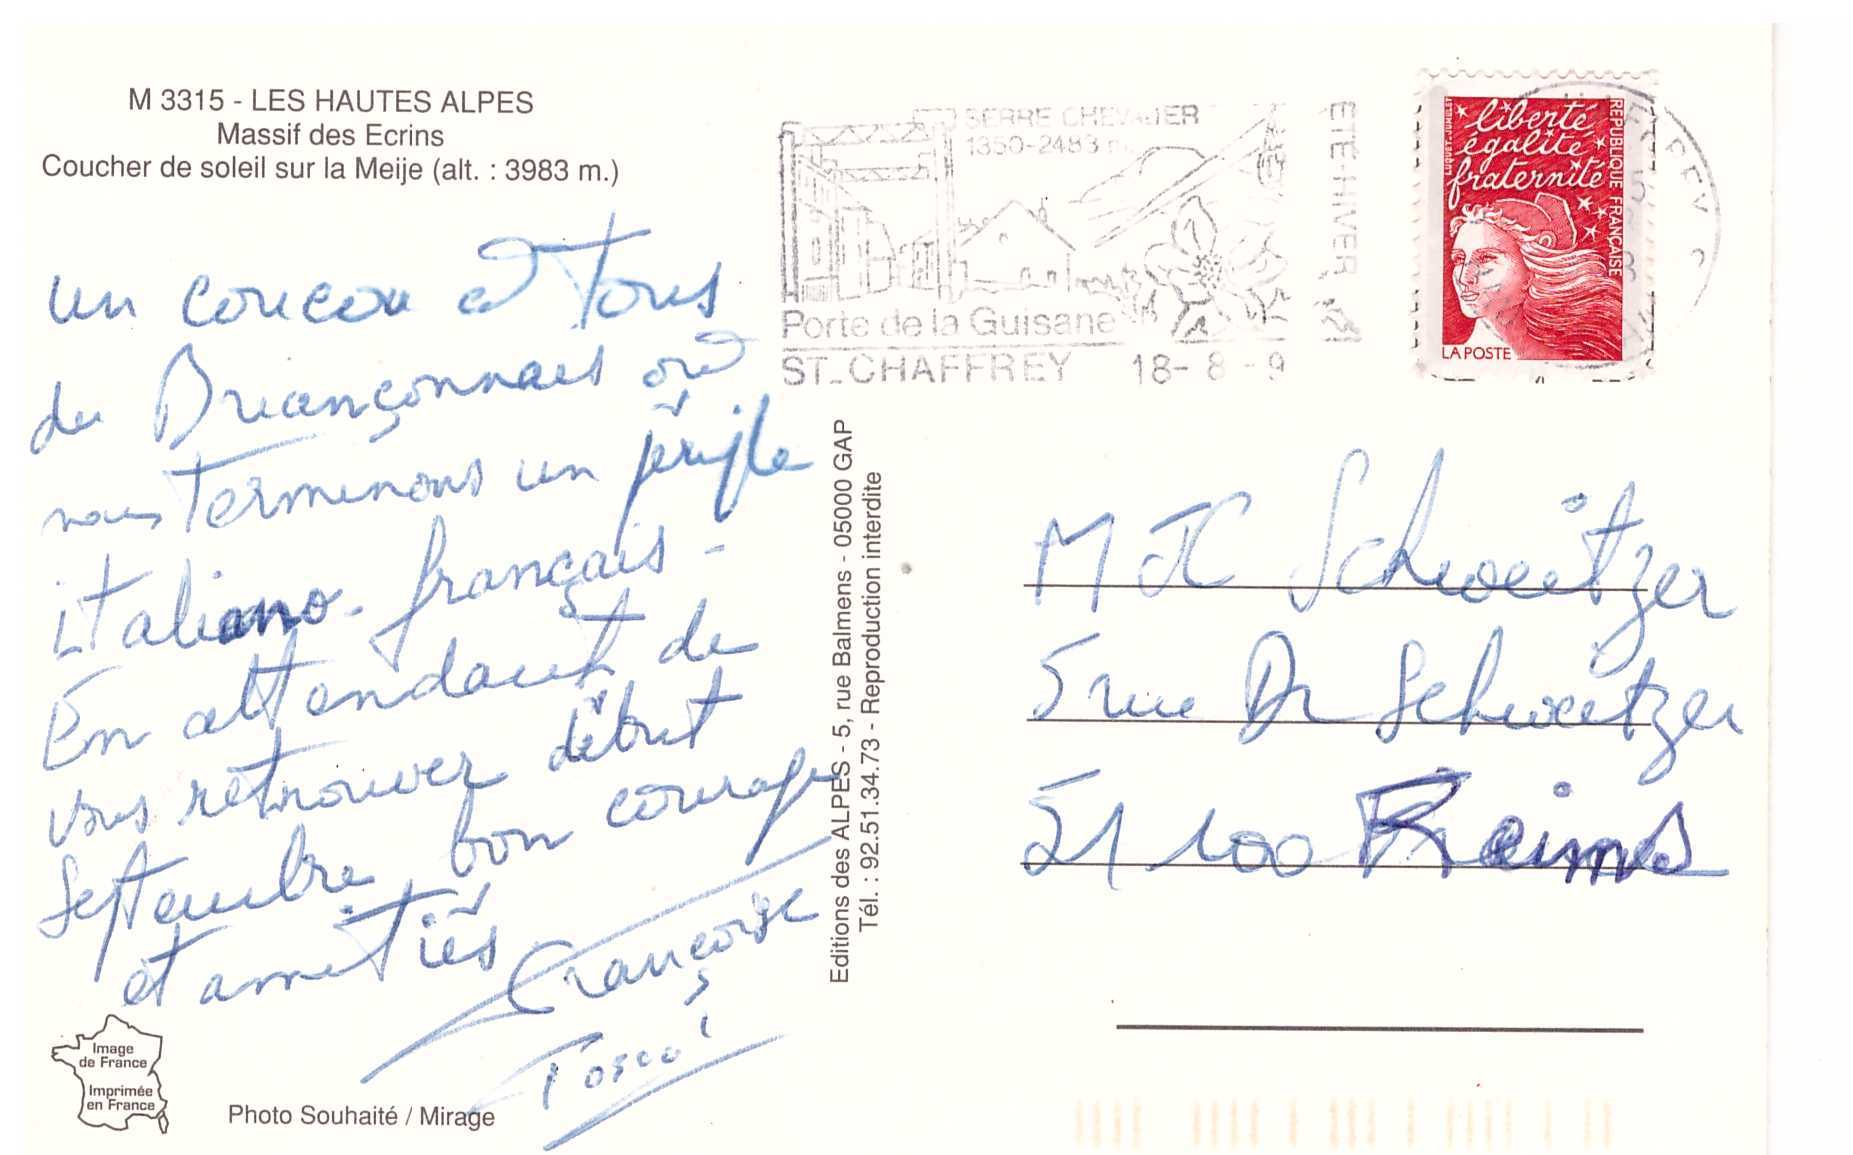 M 3315 - LES HAUTES ALPES
Massif des Ecrins
Coucher de soleil sur la Meije (alt. : 3983 m.)
un coucou à tous
du Briançonnais où
nous terminons un périple
italiano-français -
En attendant de
vous retrouver début
septembre bon courage
et amitiés
Françoise
Image
de France
Imprimée
en France
Photo Souhaité / Mirage
Editions des ALPES - 5, rue Balmens - 05000 GAP
Tél. : 92.51.34.73 - Reproduction interdite
SERRE CHEVALIER
1350-2483 m
ETE-HIVER
Porte de la Guisane
ST-CHAFFREY 18-8-9
liberté
égalité
fraternité
REPUBLIQUE FRANÇAISE
LA POSTE
M JC Schweitzer
5 rue Dr Schweitzer
51100 Reims